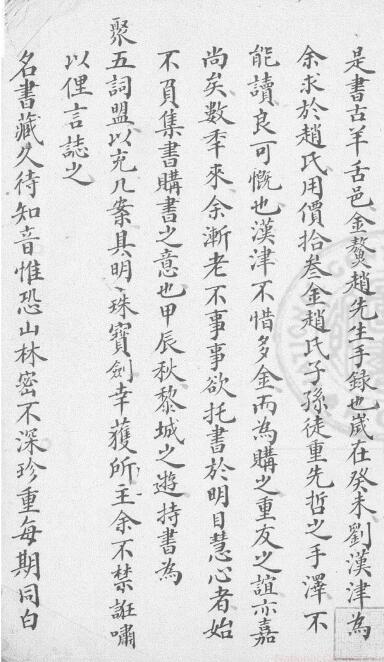 是書古羊舌邑金鰲趙先生手錄也歲在癸未劉漢津為
余求於趙氏用價拾叁金趙氏子孫徒重先哲之手澤不
能讀良可慨也漢津不惜多金而為購之重友之誼亦嘉
尚矣數秊來余漸老不事事欲托書於明目慧心者始
不負集書購書之意也甲辰秋黎城之遊持書為
聚五詞盟以充几案具明珠寶劍幸獲所主余不禁誑嘯
以俚言誌之
名書藏久待知音惟恐山林密不深珍重每期同白